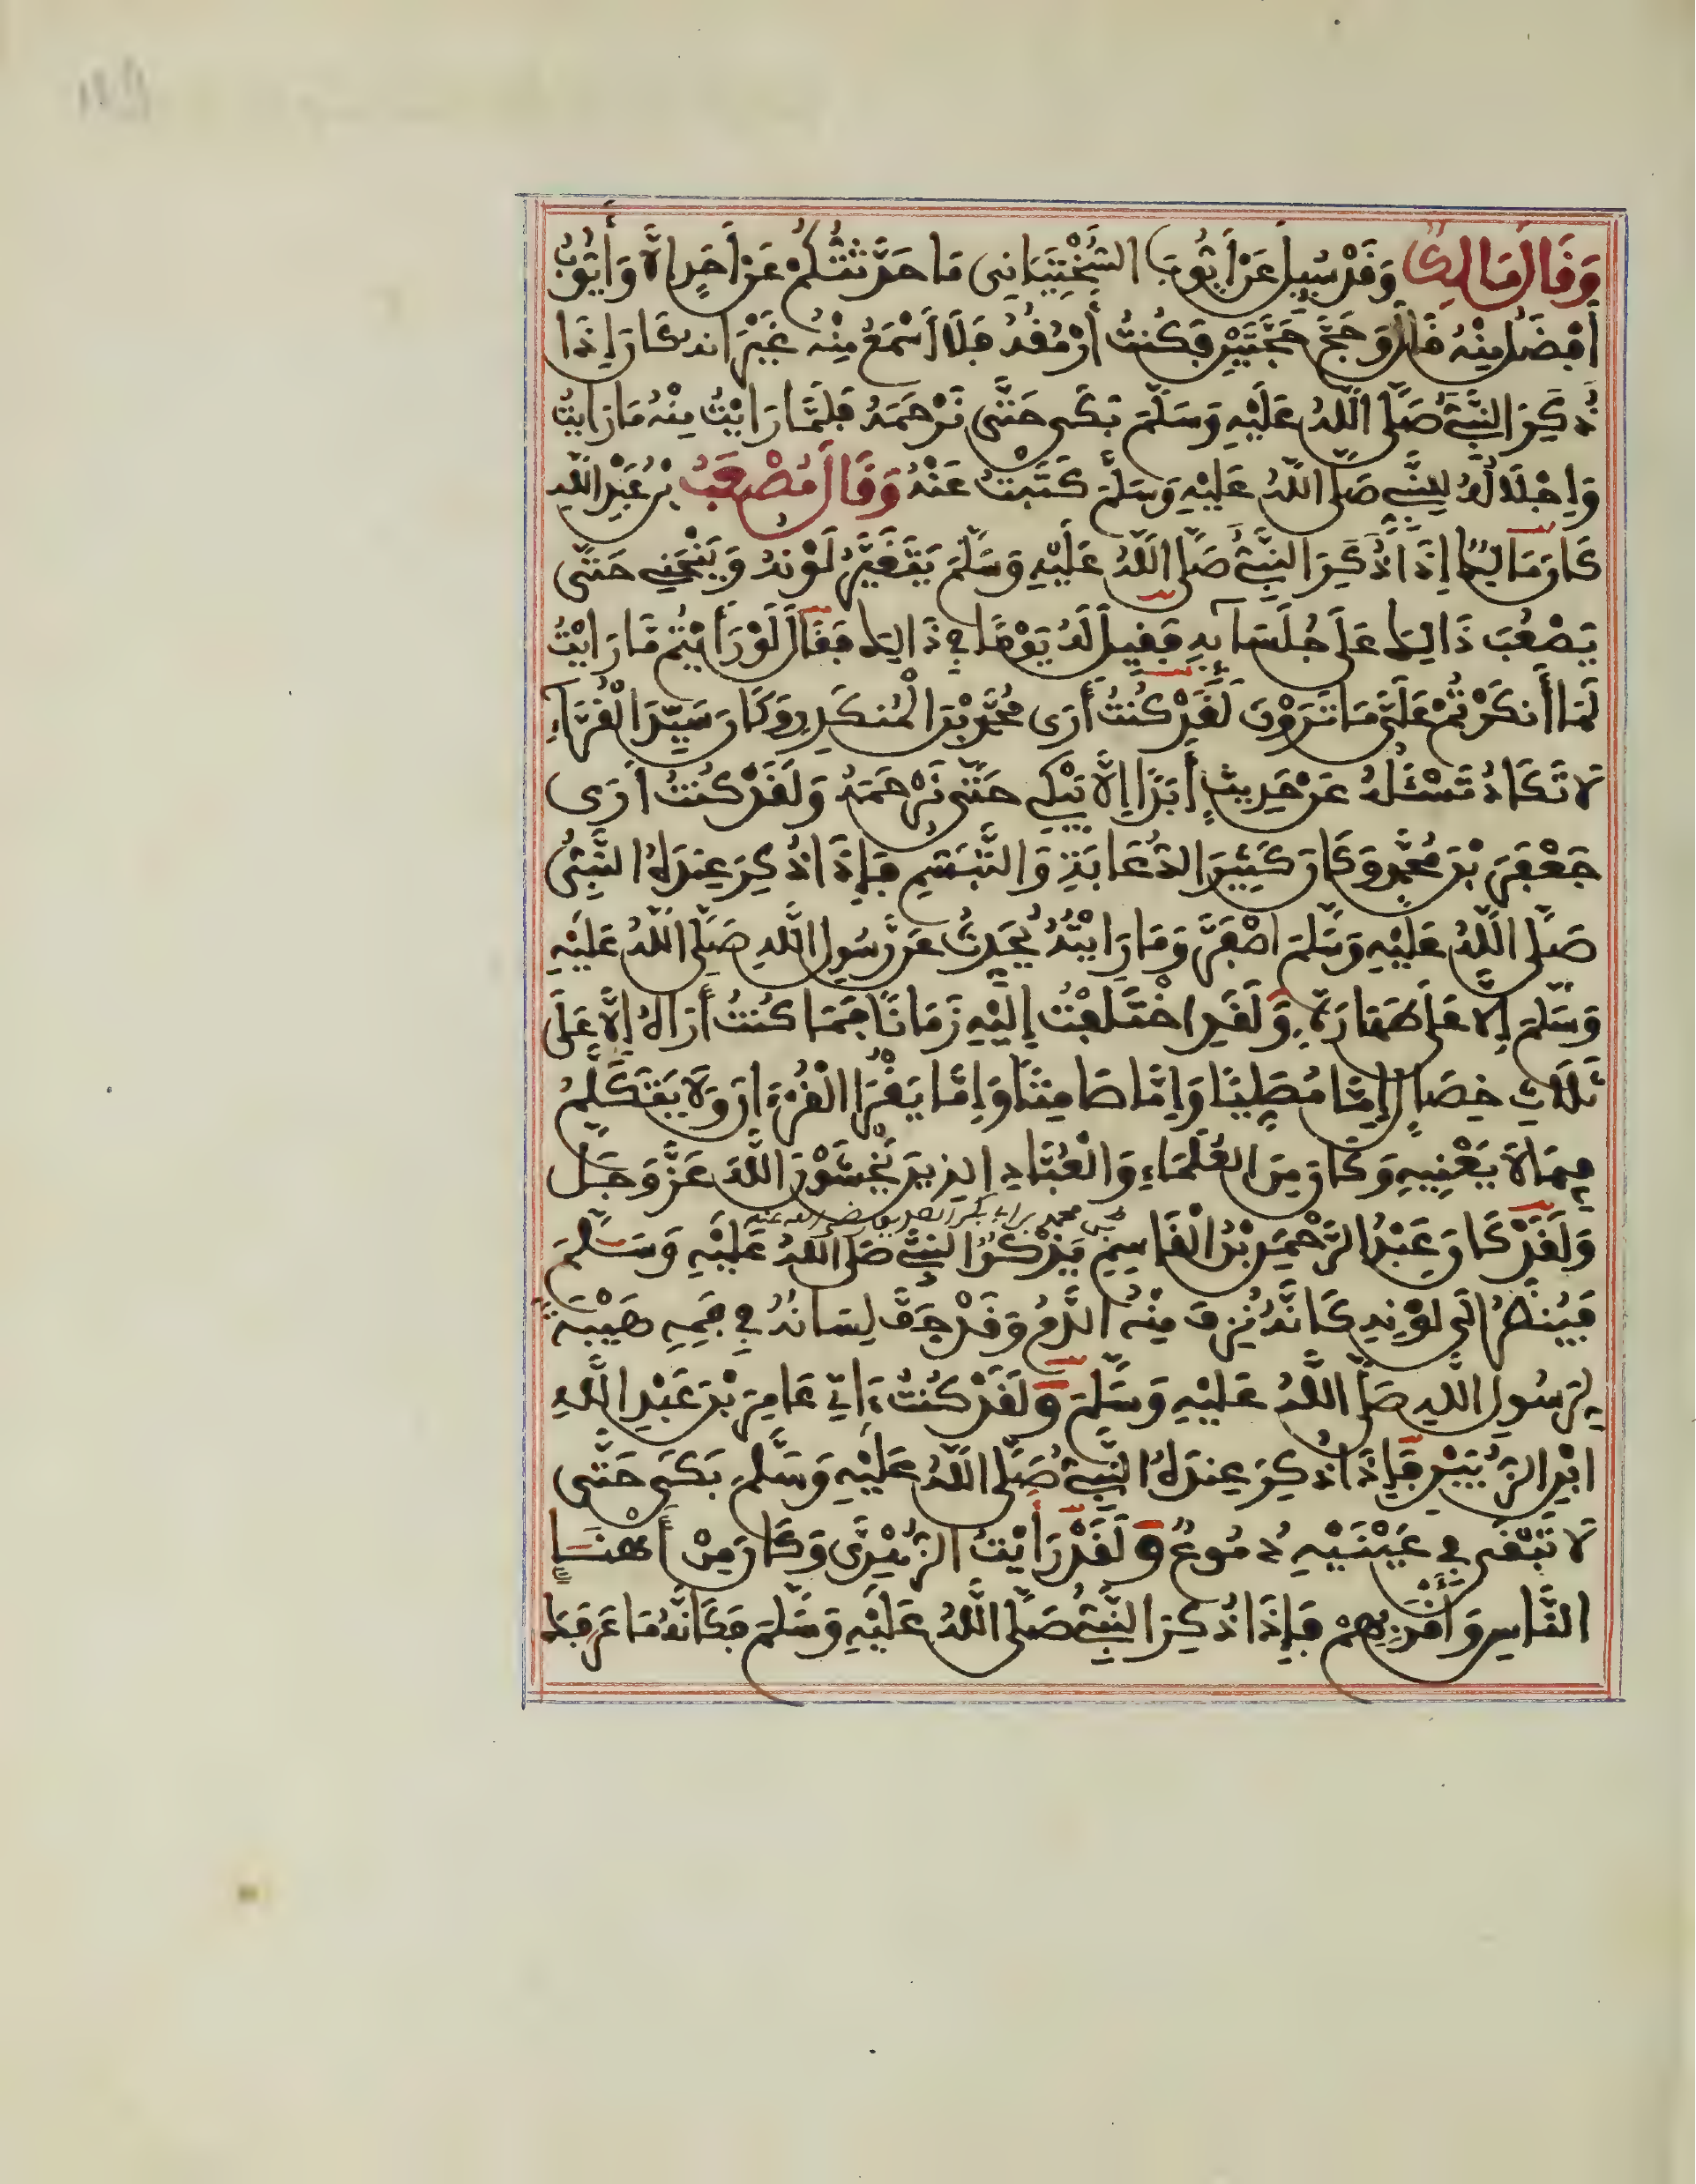 وَقَالَ مَالِكٌ وَقَدْ سُئِلَ عَنْ أَيُّوبَ السَّخْتِيَانِي مَا حَدَّثْتُكُمْ عَنْ أَحَدٍ إِلَّا وَأَيُّوبُ
أَفْضَلُ مِنْهُ قَالَ وَحَجَّ حَجَّتَيْنِ فَكُنْتُ أَرْمُقُهُ فَلَا أَسْمَعُ مِنْهُ غَيْرَ انه كَانَ إِذَا
ذُكِرَ النَّبِيُّ صَلَّى اللَّهُ عَلَيْهِ وَسَلَّمَ بَكَى حَتَّى نَرْحَمَهُ فَلَمَّا رَايْتُ مِنْهُ مَا رَايْتُ
وَإِجْلَالَهُ لِلنَّبِيِّ صَلَّى اللَّهُ عَلَيْهِ وَسَلَّمَ كَتَبْتُ عَنْهُ وَقَالَ مُصْعَبُ بْنُ عَبْدِ اللَّهِ
كَانَ مَالِكٌ إِذَا ذُكِرَ النَّبِيُّ صَلَّى اللَّهُ عَلَيْهِ وَسَلَّمَ يَتَغَيَّرُ لَوْنُهُ وَيَنْحَنِي حَتَّى
يَصْعُبَ ذَالِكَ عَلَى جُلَسَائِهِ فَقِيلَ لَهُ يَوْمًا فِي ذَالِكَ فَقَالَ لَوْ رَأَيْتُمْ مَا رَايْتُ
لَمَا أَنكَرْتُمْ عَلَيَّ مَا تَرَوْنَ لَقَدْ كُنْتُ أَرَى مُحَمَّدَ بْنَ الْمُنكَدِرِ وَكَانَ سَيِّدَ الْقُرَّاءِ
لَا نَكَادُ نَسْئَلُهُ عَنْ حَدِيثٍ أَبَدًا إِلَّا يَبْكِي حَتَّى نَرْحَمَهُ وَلَقَدْ كُنْتُ أَرَى
جَعْفَرَ بْنَ مُحَمَّدٍ وَكَانَ كَثِيرَ الدُّعَابَةِ وَالتَّبَسُّمِ فَإِذَا ذُكِرَ عِندَهُ النَّبِيُّ
صَلَّى اللَّهُ عَلَيْهِ وَسَلَّمَ اصْفَرَّ وَمَا رَايْتُهُ يُحَدِّثُ عَن رَّسُولِ اللَّهِ صَلَّى اللَّهُ عَلَيْهِ
وَسَلَّمَ إِلَّا عَلَى طَهَارَةٍ وَلَقَدِ اخْتَلَفْتُ إِلَيْهِ زَمَانًا فَمَا كُنْتُ أَرَاهُ إِلَّا عَلَى
ثَلَاثِ خِصَالٍ إِمَّا مُصَلِّيًا وَإِمَّا صَامِتًا وَإِمَّا يَقْرَأُ الْقُرْءَانَ وَلَا يَتَكَلَّمُ
فِيمَا لَا يَعْنِيهِ وَكَانَ مِنَ الْعُلَمَاءِ وَالْعُبَّادِ الذِينَ يَخْشَوْنَ اللَّهَ عَزَّ وَجَلَّ
بن محمد بن أبي بكر الصديق رضي الله عنه
وَلَقَدْ كَانَ عَبْدُ الرَّحْمَنِ بْنُ الْقَاسِمِ يَذْكُرُ النَّبِيَّ صَلَّى اللَّهُ عَلَيْهِ وَسَلَّمَ
فَيُنظَرُ إِلَى لَوْنِهِ كَانَّهُ نُزِفَ مِنْهُ الدَّمُ وَقَدْ جَفَّ لِسَانُهُ فِي فَمِهِ هَيْبَةً
لِرَسُولِ اللَّهِ صَلَّى اللَّهُ عَلَيْهِ وَسَلَّمَ وَلَقَدْ كُنْتُ ءَاتِي عَامِرَ بْنَ عَبْدِ اللَّهِ
ابْنِ الزُّبَيْرِ فَإِذَا ذُكِرَ عِندَهُ النَّبِيُّ صَلَّى اللَّهُ عَلَيْهِ وَسَلَّمَ بَكَى حَتَّى
لَا تَبْقَى فِي عَيْنَيْهِ دُمُوعٌ وَلَقَدْ رَأَيْتُ الزُّهْرِيَّ وَكَانَ مِنْ أَهْنَإِ
النَّاسِ وَأَقْرَبِهِمْ فَإِذَا ذُكِرَ النَّبِيُّ صَلَّى اللَّهُ عَلَيْهِ وَسَلَّمَ فَكَأَنَّهُ مَا عَرَفَكَ